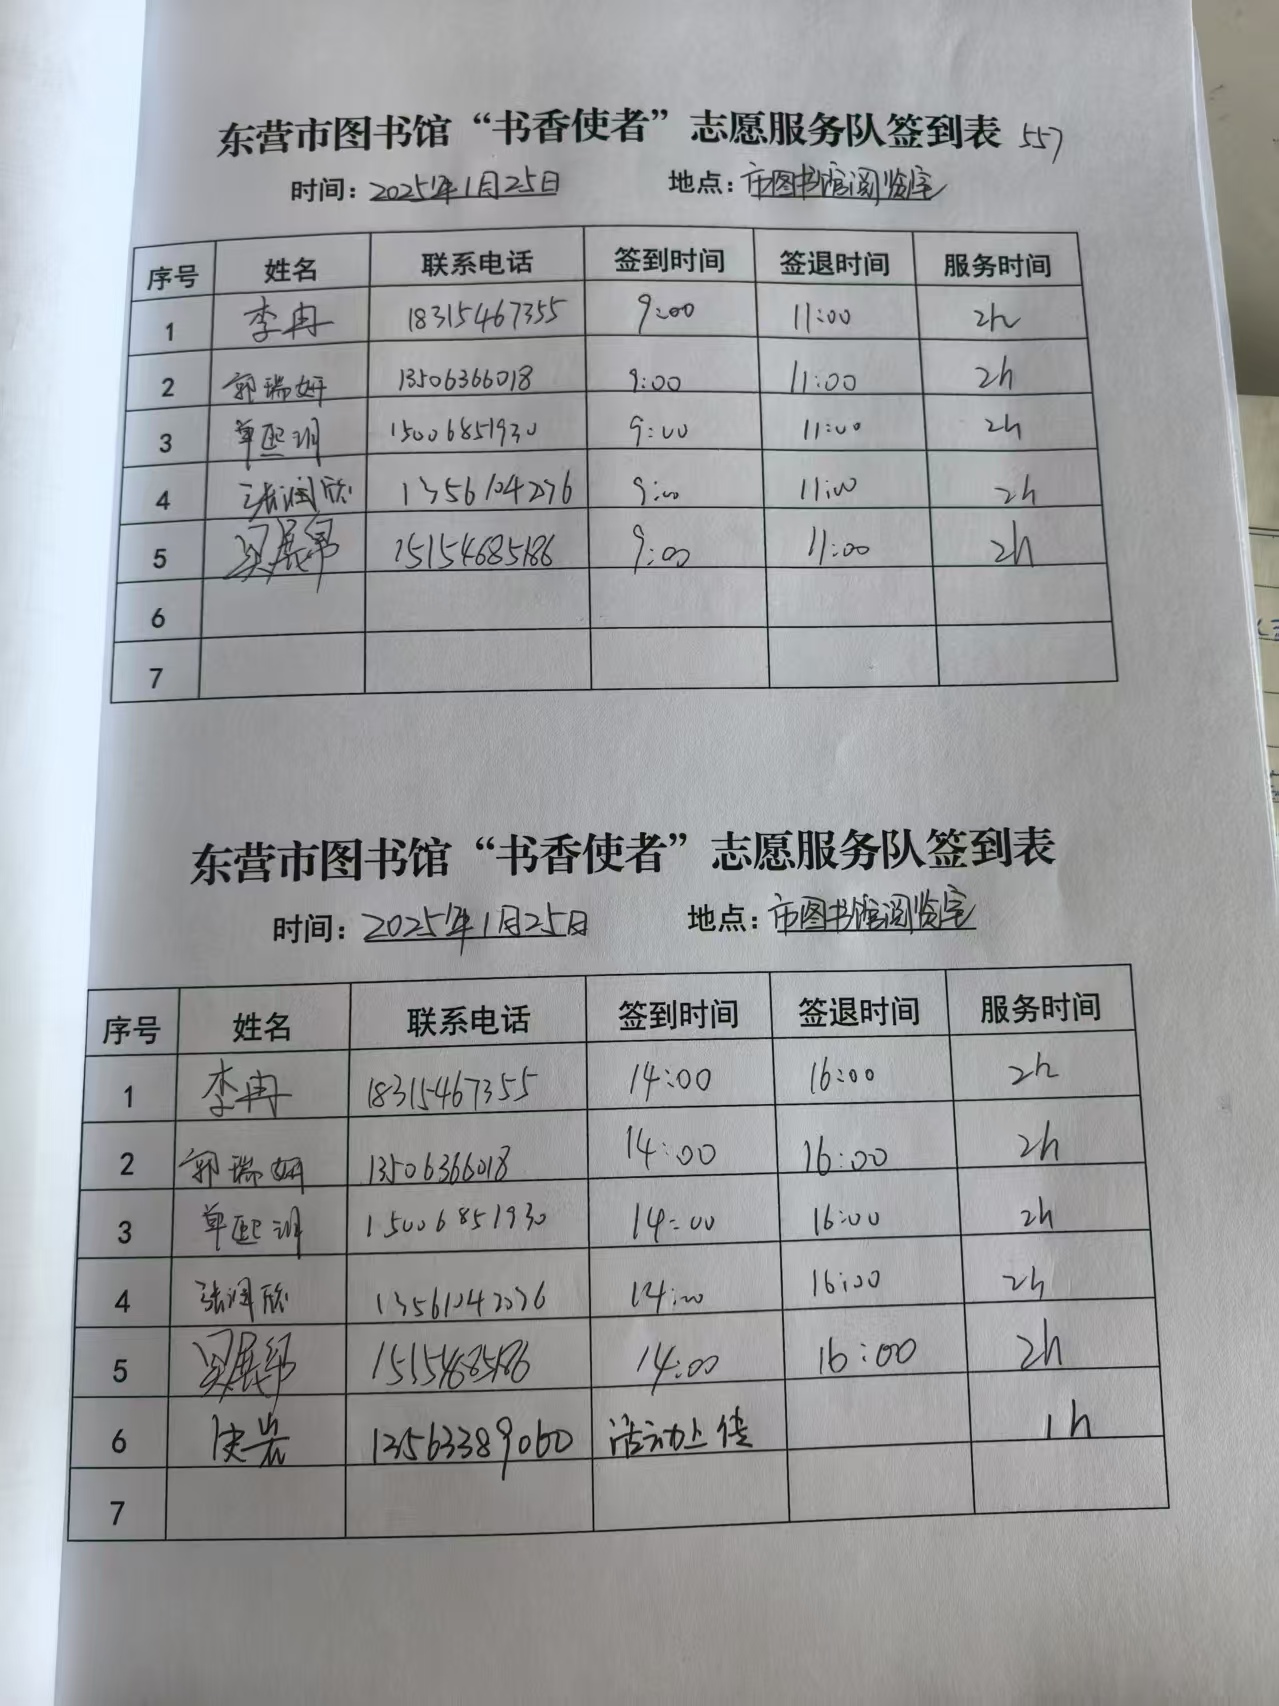 东营市图书馆“书香使者”志愿服务队签到表 557
时间：2025年1月25日 地点：市图书馆阅览室
序号 姓名 联系电话 签到时间 签退时间 服务时间
1 李冉 18315467355 9:00 11:00 2h
2 郭瑞妍 13506366018 9:00 11:00 2h
3 单熙玥 15006851930 9:00 11:00 2h
4 张润欣 13561042276 9:00 11:00 2h
5 15154685186 9:00 11:00 2h
6
7
东营市图书馆“书香使者”志愿服务队签到表
时间：2025年1月25日 地点：市图书馆阅览室
序号 姓名 联系电话 签到时间 签退时间 服务时间
1 李冉 18315467355 14:00 16:00 2h
2 郭瑞妍 13506366018 14:00 16:00 2h
3 单熙玥 15006851930 14:00 16:00 2h
4 张润欣 13561042276 14:00 16:00 2h
5 15154685186 14:00 16:00 2h
6 13563389060 活动上传 1h
7